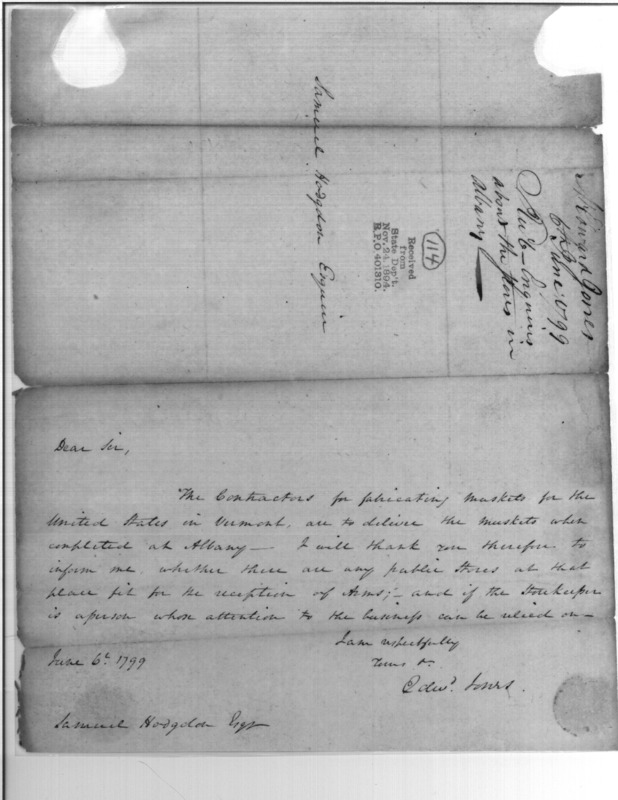 Samuel Hodgdon Esquire
(114)
Received
from
State Dep't.
Nov. 24, 1894.
R.P.O 401810.
Edward Jones
6th June 1799
Enquiries
about the Stores in
Albany
Dear Sir,
The Contractors for fabricating muskets for the
United States in Vermont, are to deliver the muskets when
completed at Albany— I will thank you therefore to
inform me whether there are any public Stores at that
place fit for the reception of Arms;— and if the Storekeeper
is a person whose attention to the business can be relied on—
I am respectfully
Yours &
Edwd. Jones.
June 6th 1799
Samuel Hodgdon Esqr